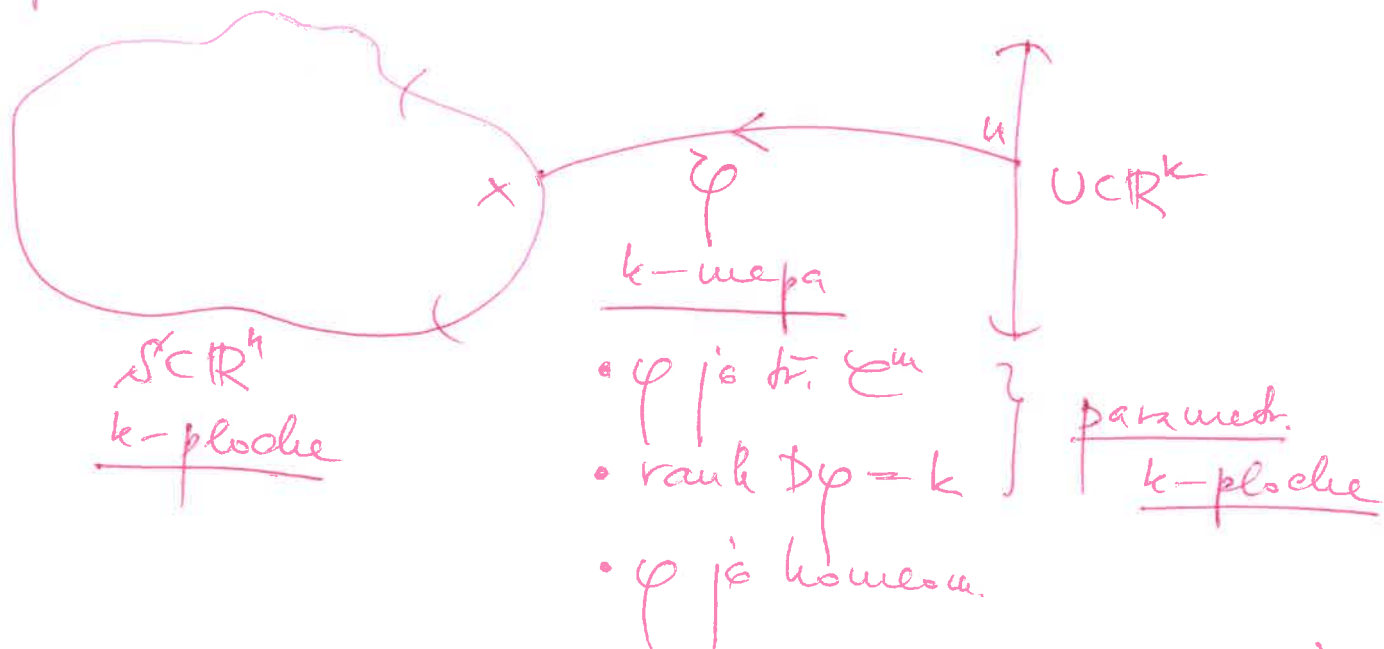 u
U⊂ℝᵏ
x
φ
k-mapa
S⊂ℝⁿ
k-plocha
• φ je tř. 𝒞ᵐ
• rank Dφ = k
• φ je homeom.
parametr.
k-plocha